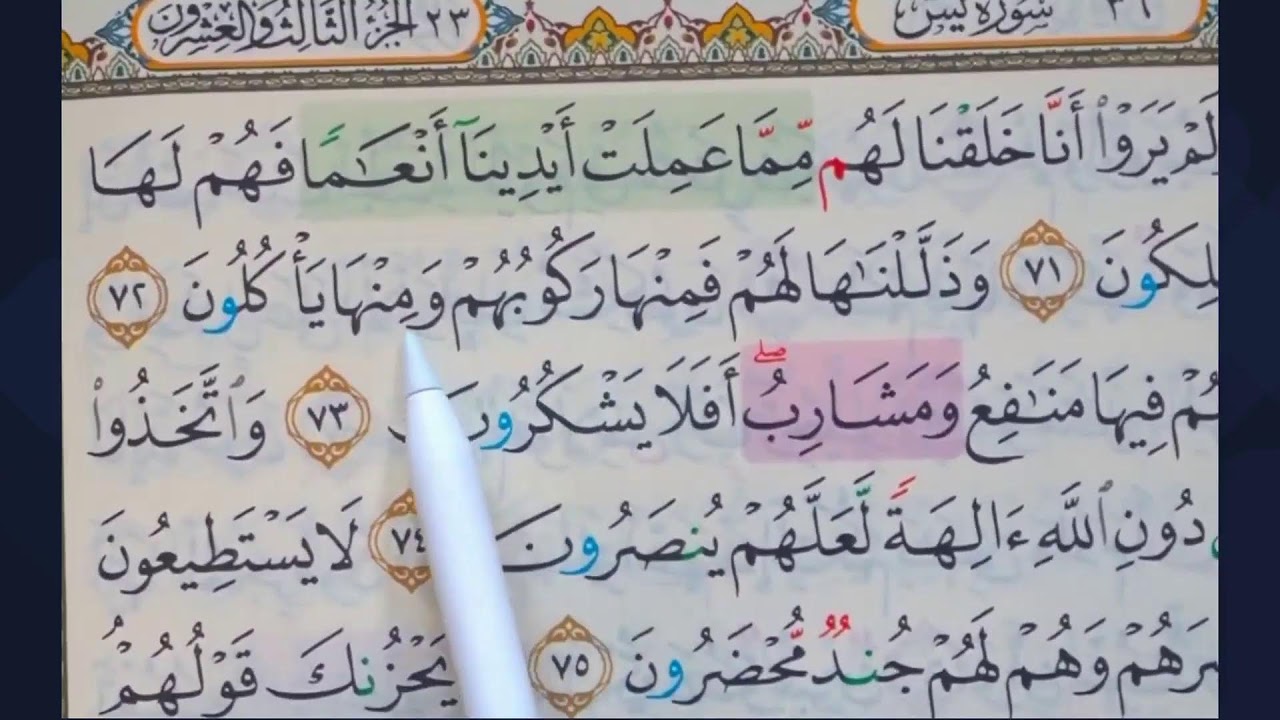 سورة يس ٣٦ الجزء الثالث والعشرون ٢٣
لَمْ يَرَوْا۟ أَنَّا خَلَقْنَا لَهُم مِّمَّا عَمِلَتْ أَيْدِينَآ أَنْعَـٰمًا فَهُمْ لَهَا
لِكُونَ ٧١ وَذَلَّلْنَـٰهَا لَهُمْ فَمِنْهَا رَكُوبُهُمْ وَمِنْهَا يَأْكُلُونَ ٧٢
هُمْ فِيهَا مَنَـٰفِعُ وَمَشَارِبُ ۖ أَفَلَا يَشْكُرُونَ ٧٣ وَٱتَّخَذُوا۟
دُونِ ٱللَّهِ ءَالِهَةً لَّعَلَّهُمْ يُنصَرُونَ ٧٤ لَا يَسْتَطِيعُونَ
صْرَهُمْ وَهُمْ لَهُمْ جُندٌ مُّحْضَرُونَ ٧٥ يَحْزُنكَ قَوْلُهُمْ